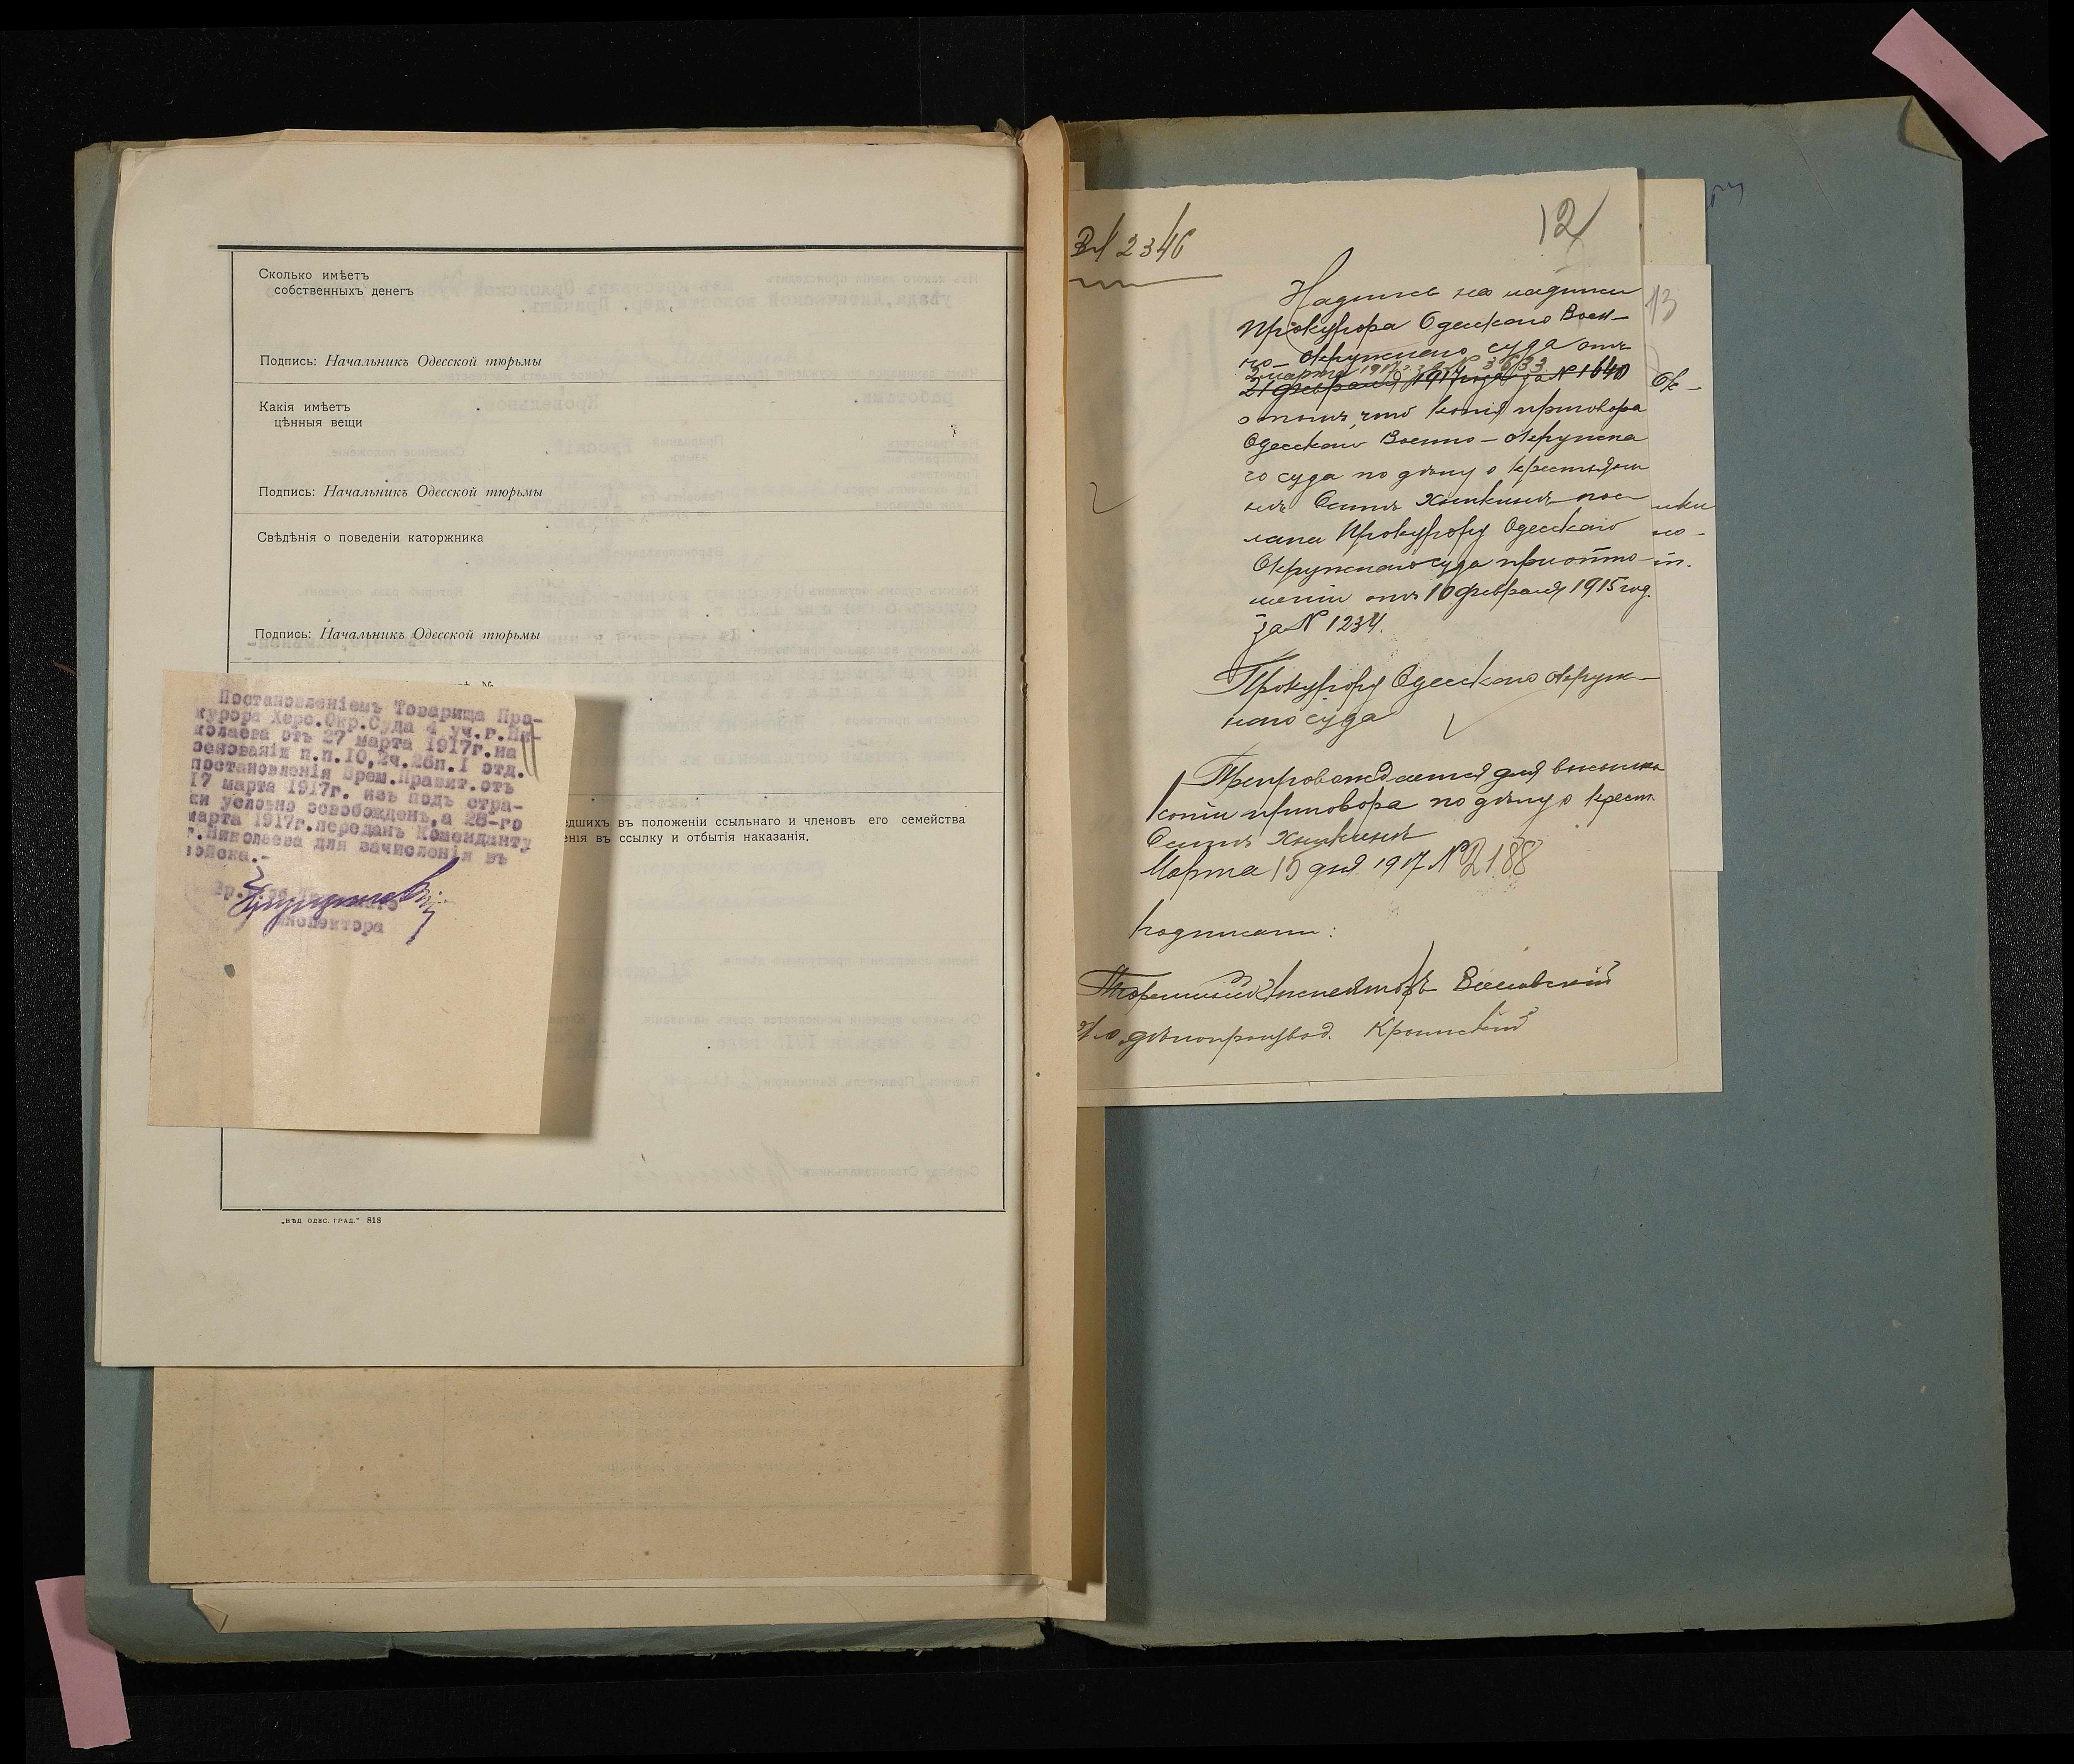 Сколько имѣетъ
собственныхъ денегъ
Подпись: Начальникъ Одесской тюрьмы
Какія имѣетъ
цѣнныя вещи
Подпись: Начальникъ Одесской тюрьмы
Свѣдѣнія о поведеніи каторжника
Подпись: Начальникъ Одесской тюрьмы
№
Постановленіемъ Товарища Про-
курора Херс.Окр.Суда 4 уч.г.Ни-
колаева отъ 27 марта 1917г.на
основаніи п.п.10,2ч.26п.I отд.
постановленія Врем.Правит.отъ
17 марта 1917г. изъ подъ стра-
жи условно освобожденъ,а 28-го
марта 1917г.переданъ Коменданту
г.Николаева для зачисленія въ
войска.-
Инспектора
едшихъ въ положеніи ссыльнаго и членовъ его семейства
енія въ ссылку и отбытія наказанія.
„ВѢД. ОДЕС. ГРАД.“ 818
2346
12
Надпись на надписи
Прокурора Одесскаго Воен-
но-Окружнаго суда отъ
2 марта 1917 г. за № 3633
21 февраля 1917 года за № 1640
о томъ, что копія приговора
Одесскаго Военно-Окружна
го суда по дѣлу о крестьяни
нѣ пос
лана Прокурору Одесскаго
Окружнаго суда при отно
шеніи отъ 10 февраля 1915 год.
за № 1234.
Прокурору Одесскаго Окруж-
наго суда
Препровождается для высылки
копіи приговора по дѣлу о крест.
Марта 15 дня 1917 № 2188
Подписали:
Тюремный Инспекторъ
И. о. дѣлопроизвод.
13